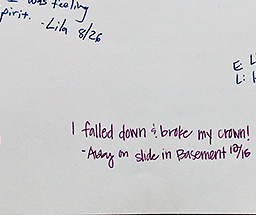 I was feeling
pirit. -Lila 8/26
E L
Li
I falled down & broke my crown!
- on slide in Basement 10/15